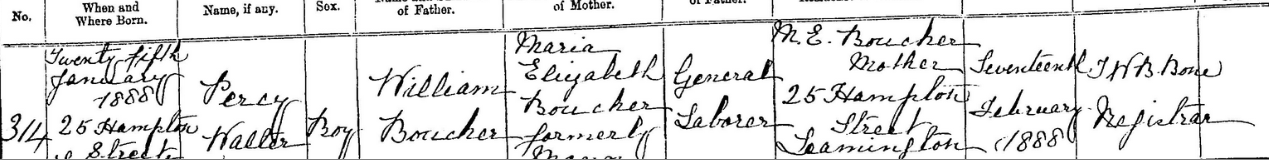 No.
When and
Where Born.
Name, if any.
Sex.
of Father.
of Mother.
314
Twenty fifth
January
1888
25 Hampton
Street
Percy
Walter
Boy
William
Boucher
Maria
Elizabeth
Boucher
formerly
General
Laborer
M. E. Boucher
Mother
25 Hampton
Street
Leamington
Seventeenth
February
1888
Registrar